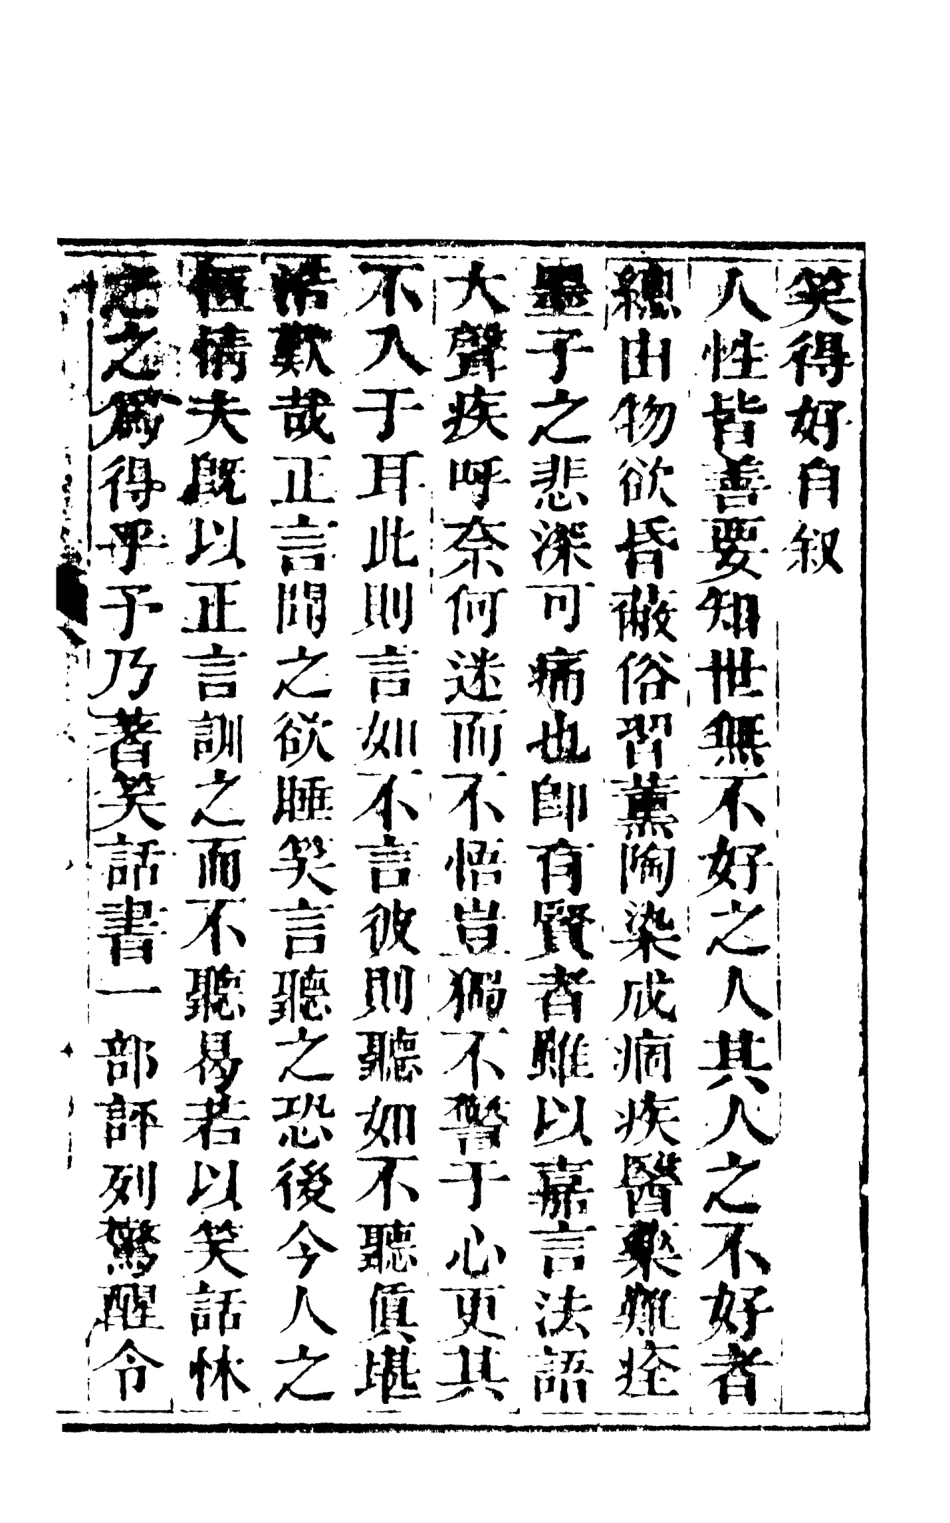 笑得好自叙
人性皆善要知世無不好之人其人之不好者
總由物欲昏蔽俗習薰陶染成痼疾醫藥難痊
墨子之悲深可痛也卽有賢者雖以嘉言法語
大聲疾呼奈何迷而不悟豈獨不警于心更其
不入于耳此則言如不言彼則聽如不聽眞堪
浩歎哉正言聞之欲睡笑言聽之恐後今人之
恆情夫旣以正言訓之而不聽曷若以笑話怵
之之爲得乎予乃著笑話書一部評列驚醒令